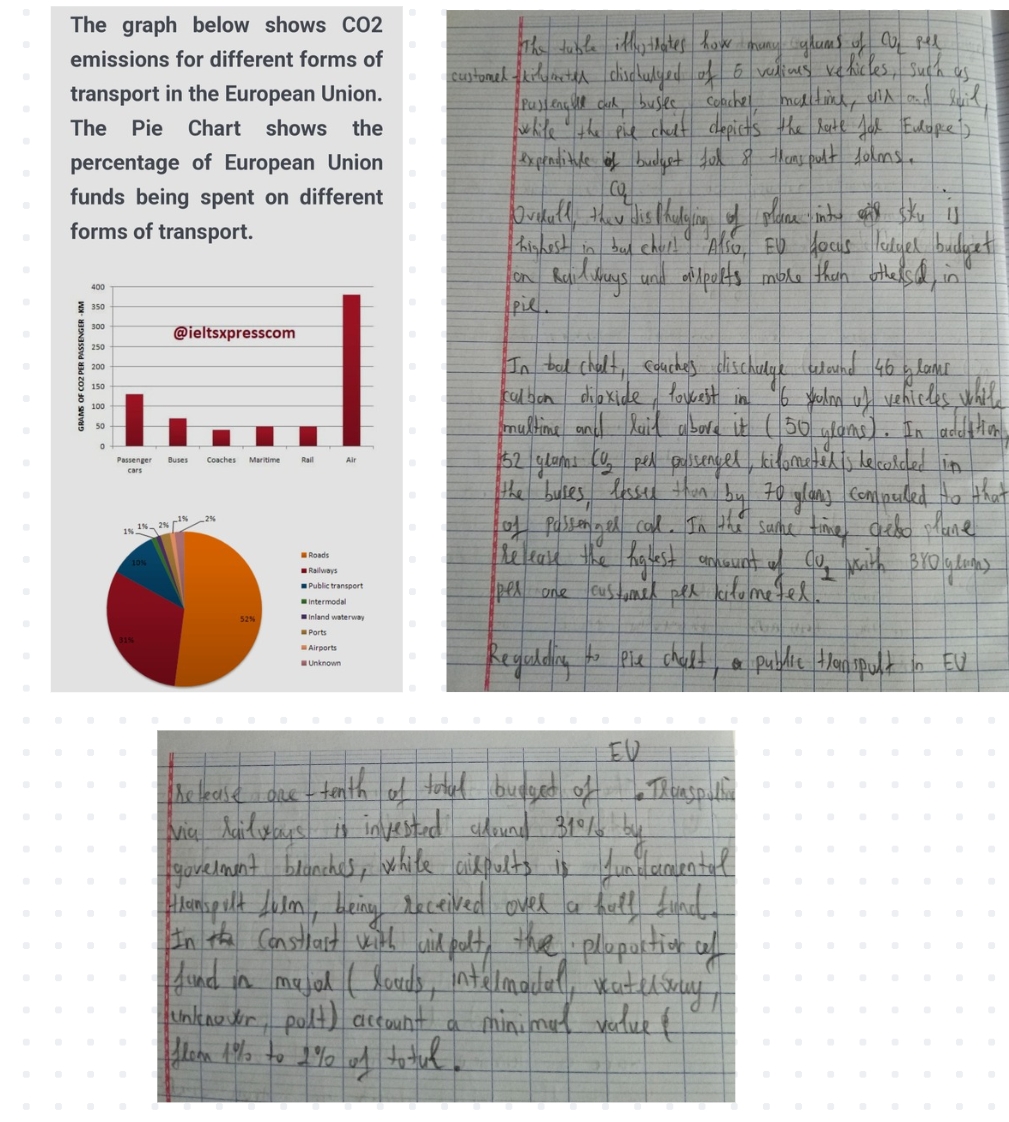 The graph below shows CO2
emissions for different forms of
transport in the European Union.
The Pie Chart shows the
percentage of European Union
funds being spent on different
forms of transport.
400
350
300
250
200
150
100
50
0
GRAMS OF CO2 PER PASSENGER -KM
@ieltsxpresscom
Passenger cars
Buses
Coaches
Maritime
Rail
Air
1%
1%
2%
1%
2%
10%
31%
52%
Roads
Railways
Public transport
Intermodal
Inland waterway
Ports
Airports
Unknown
The table illustrates how many grams of CO2 per
customer-kilometer discharged of 6 various vehicles, such as
passenger car, buses, coaches, maritime, air and rail,
while the pie chart depicts the rate for Europe's
expenditure of budget for 8 transport forms.
CO2
Overall, the discharging of plane into sky is
highest in bar chart. Also, EU focus larger budget
on Railways and airports more than others, in
pie.
In bar chart, coaches discharge around 46 grams
carbon dioxide, lowest in 6 form of vehicles while
maritime and rail above it (50 grams). In addition,
52 grams CO2 per passenger, kilometer is recorded in
the buses, lesser than by 70 grams compared to that
of passenger car. In the same time, aero plane
release the highest amount of CO2 with 380 grams
per one customer per kilometer.
Regarding to pie chart, public transport in EU
EU
release one-tenth of total budged of . Transport
via railways is invested around 31% by
goverment branches, while airports is fundamental
transport form, being received over a half fund.
In constrast with airport, the propotion of
fund in major (roads, intermodal, waterway,
unknown, port) account a minimal value
from 1% to 2% of total.